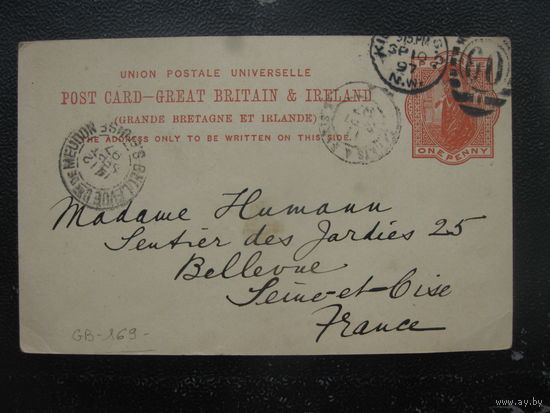 UNION POSTALE UNIVERSELLE
POST CARD—GREAT BRITAIN & IRELAND
(GRANDE BRETAGNE ET IRLANDE)
THE ADDRESS ONLY TO BE WRITTEN ON THIS SIDE.
ONE PENNY
SP 10
97
N.W.
BELLEVUE
MEUDON
Madame Humann
Sentier des Jardies 25
Bellevue
Seine-et-Oise
France
GB-169-
www.ay.by